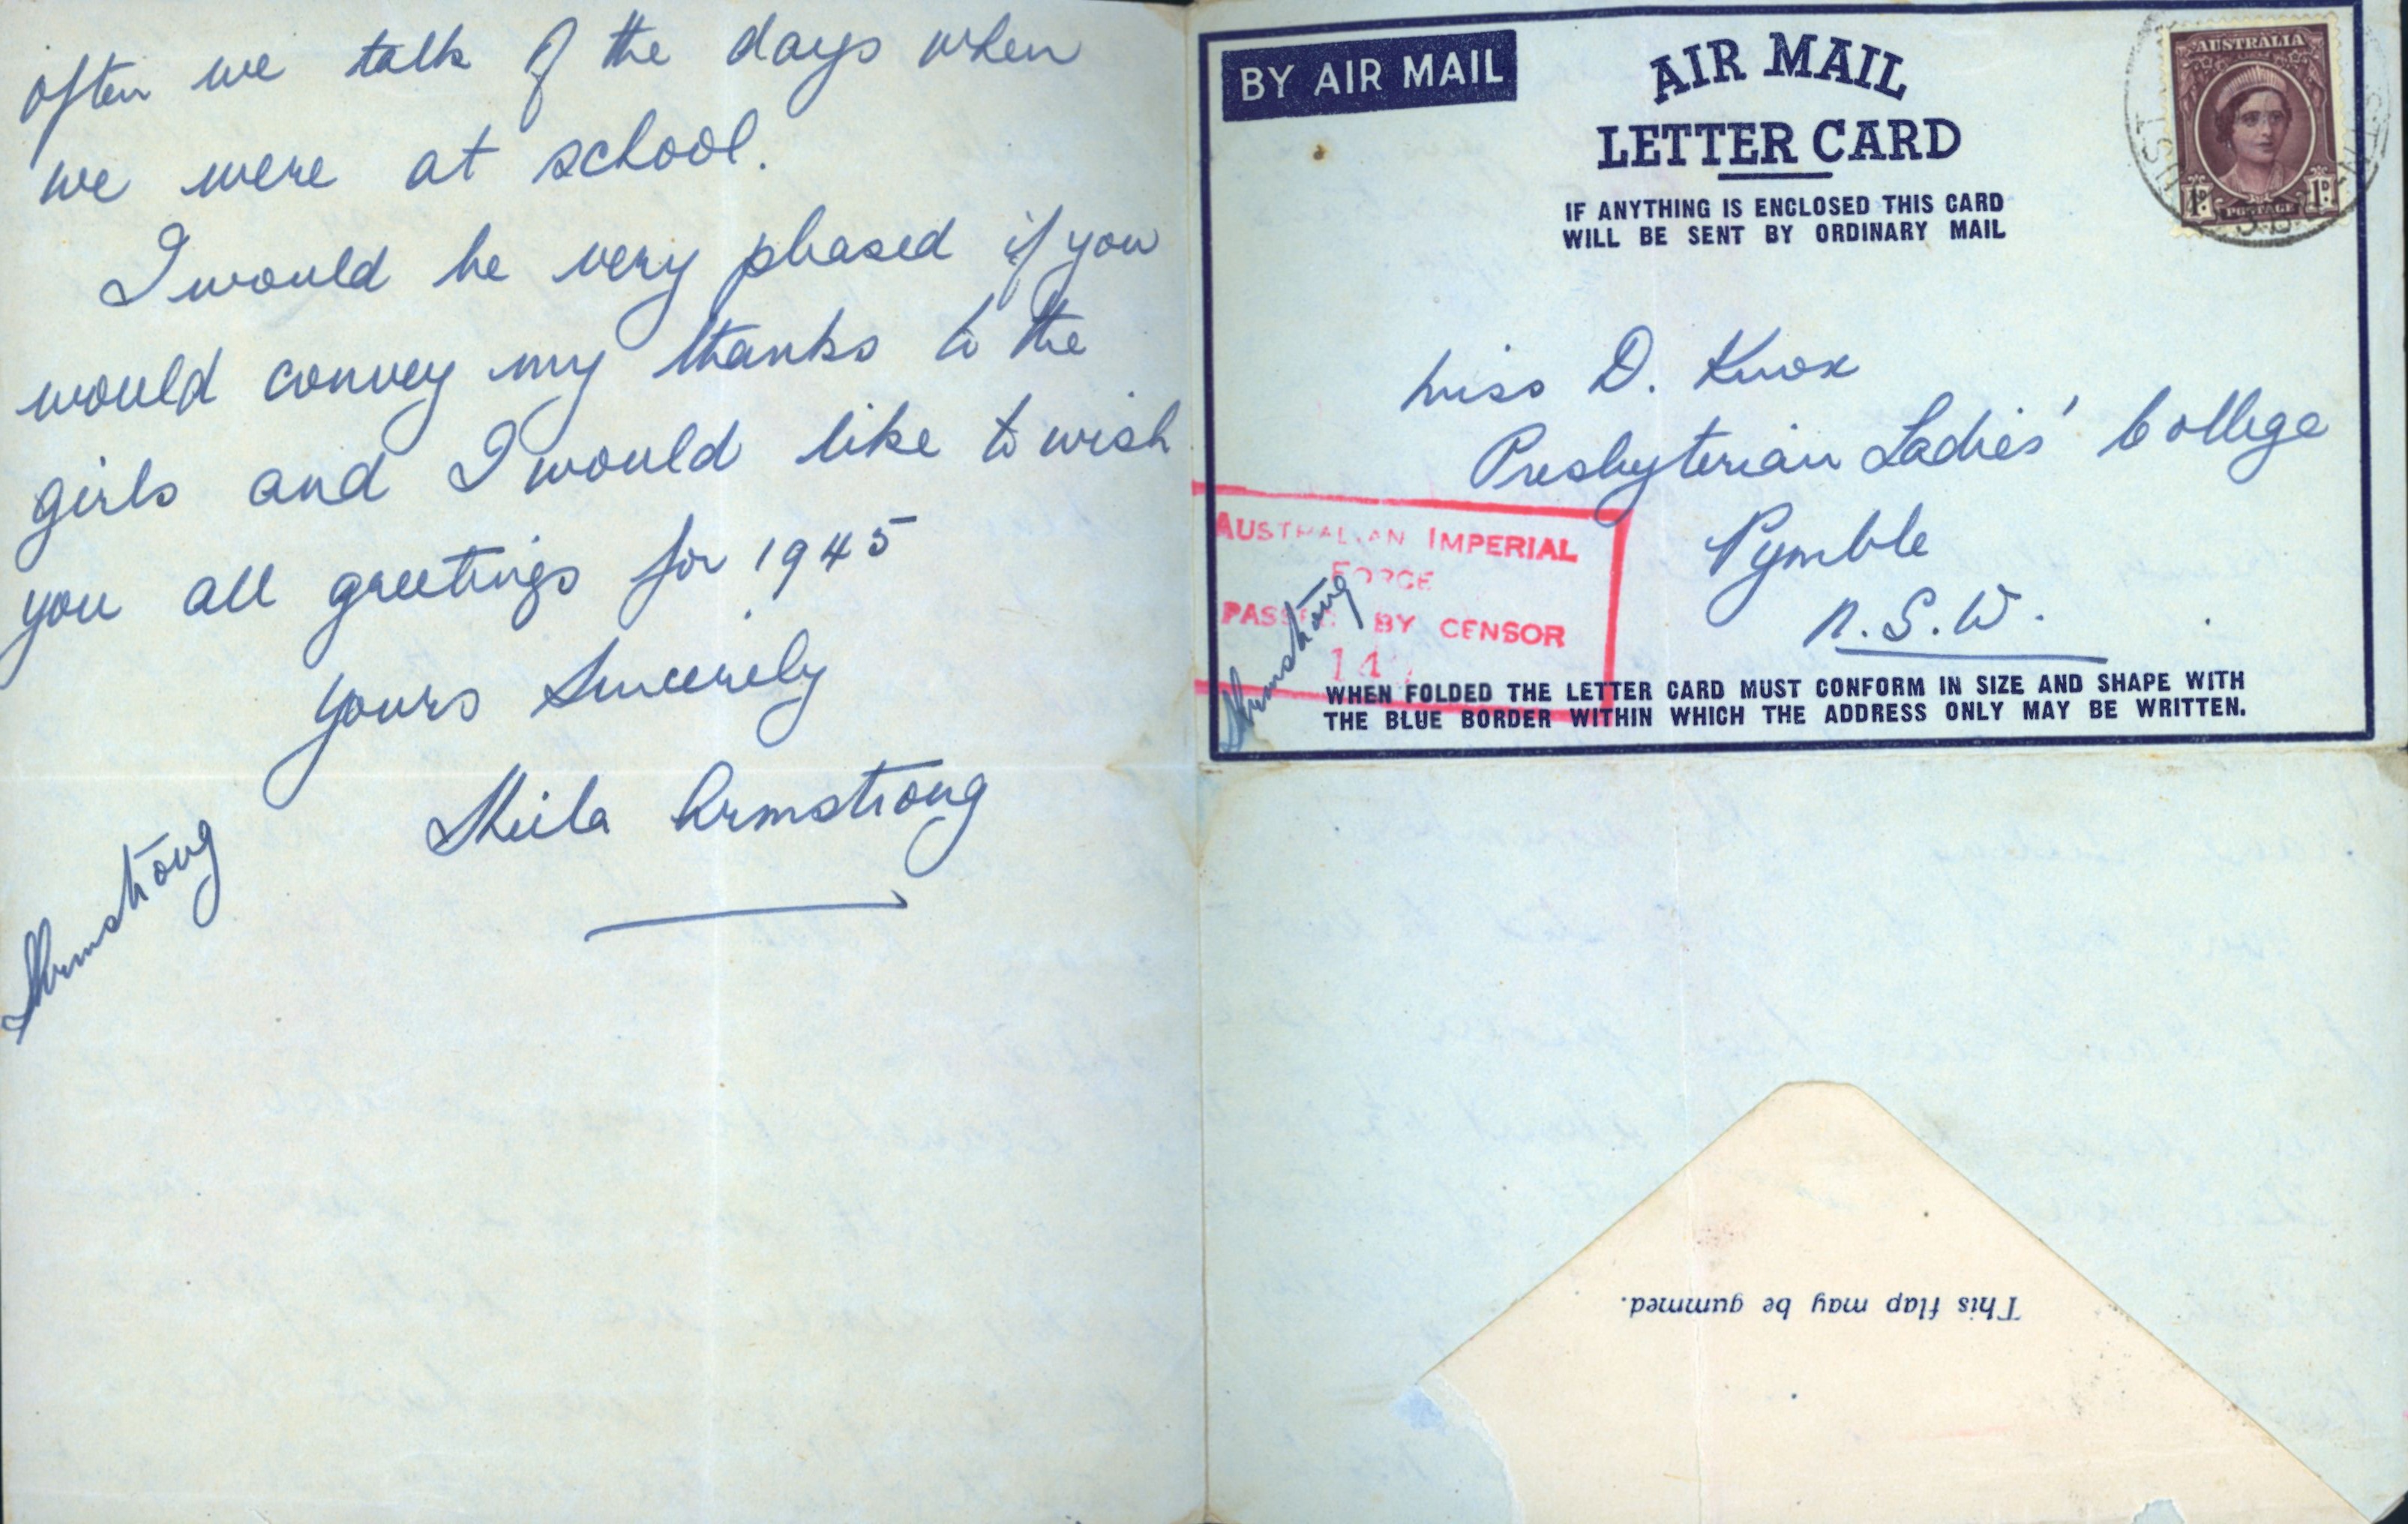 often we talk of the days when
we were at school.
I would be very pleased if you
would convey my thanks to the
girls and I would like to wish
you all greetings for 1945
Yours Sincerely
Sheila Armstrong
SArmstrong
BY AIR MAIL
AIR MAIL
LETTER CARD
IF ANYTHING IS ENCLOSED THIS CARD
WILL BE SENT BY ORDINARY MAIL
AUSTRALIA
1D. POSTAGE 1D.
Miss D. Knox
Presbyterian Ladies' College
Pymble
N.S.W.
AUSTRALIAN IMPERIAL
FORCE
PASSED BY CENSOR
SArmstrong
WHEN FOLDED THE LETTER CARD MUST CONFORM IN SIZE AND SHAPE WITH
THE BLUE BORDER WITHIN WHICH THE ADDRESS ONLY MAY BE WRITTEN.
This flap may be gummed.